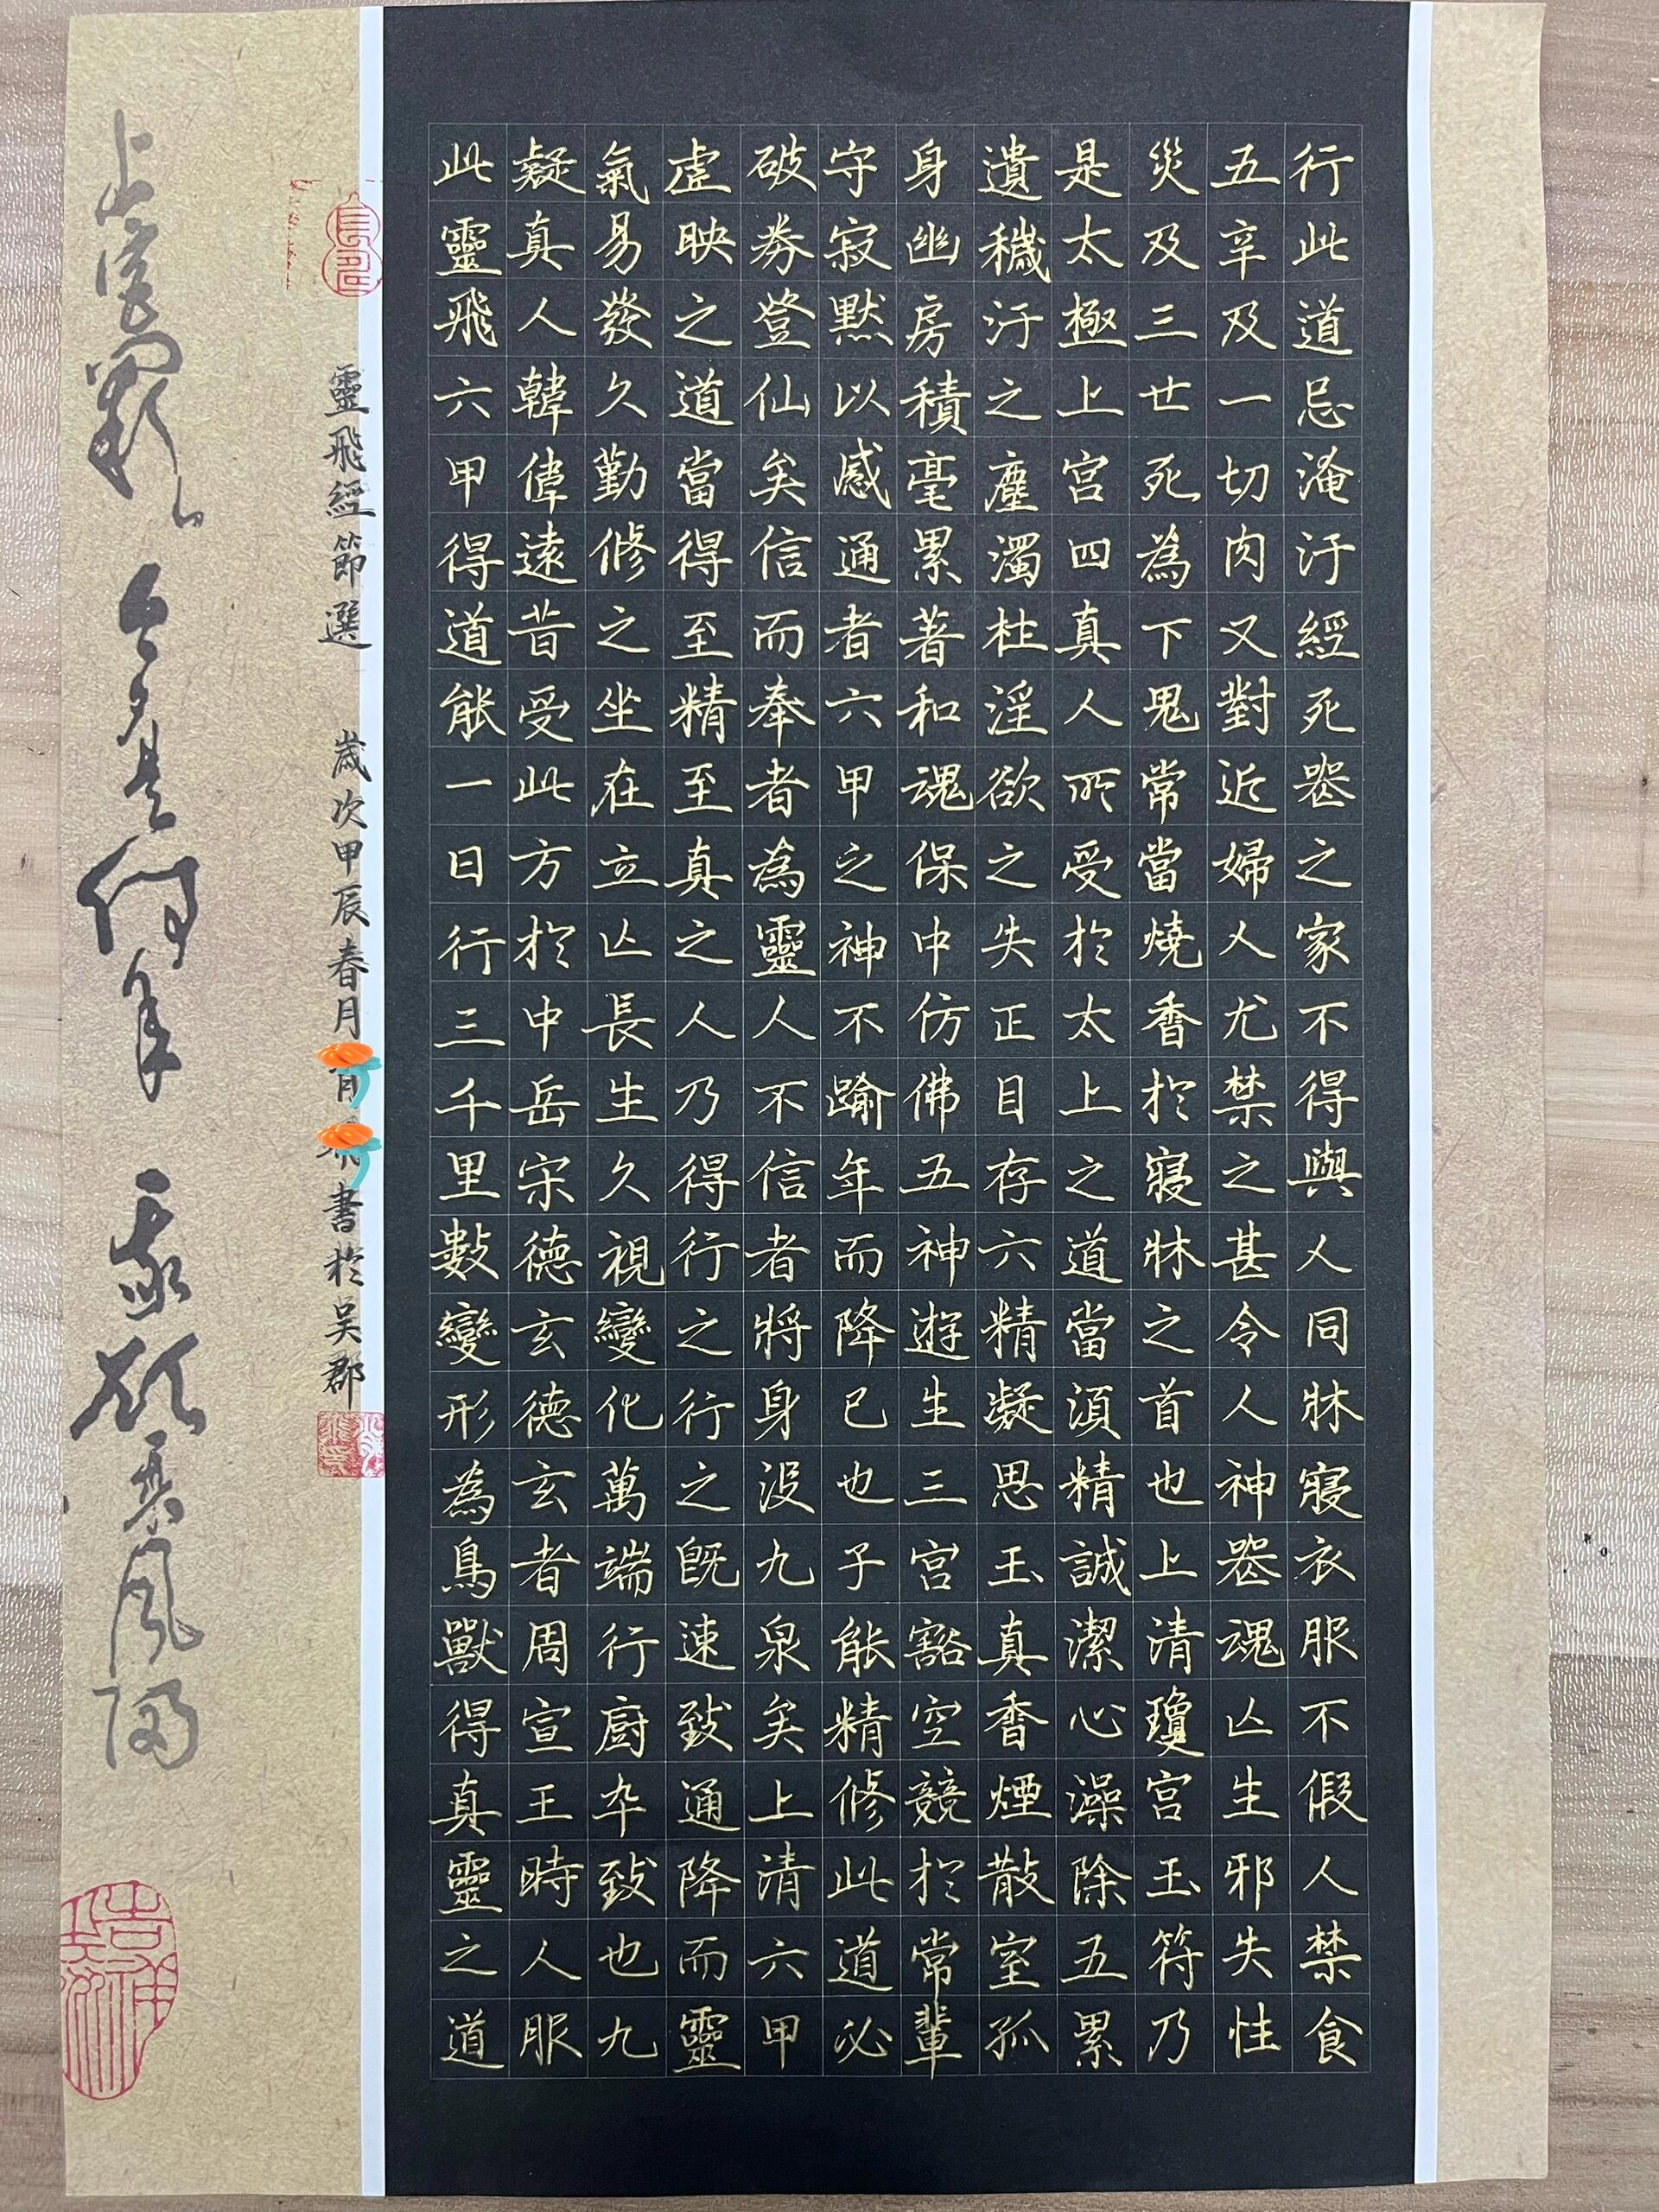 行此道忌淹汙經死喪之家不得與人同牀寢衣服不假人禁食
五辛及一切肉又對近婦人尤禁之甚令人神喪魂亾生邪失性
災及三世死為下鬼常當燒香於寢牀之首也上清瓊宮玉符乃
是太極上宮四真人所受於太上之道當須精誠潔心澡除五累
遺穢汙之塵濁杜淫欲之失正目存六精凝思玉真香煙散室孤
身幽房積毫累著和魂保中仿佛五神遊生三宮豁空競於常輩
守寂默以感通者六甲之神不踰年而降已也子能精修此道必
破券登仙矣信而奉者為靈人不信者將身没九泉矣上清六甲
虛映之道當得至精至真之人乃得行之行之既速致通降而靈
氣易發久勤修之坐在立亾長生久視變化萬端行廚卒致也九
疑真人韓偉遠昔受此方於中岳宋德玄德玄者周宣王時人服
此靈飛六甲得道能一日行三千里數變形為鳥獸得真靈之道
靈飛經節選 歲次甲辰春月 書於吳郡